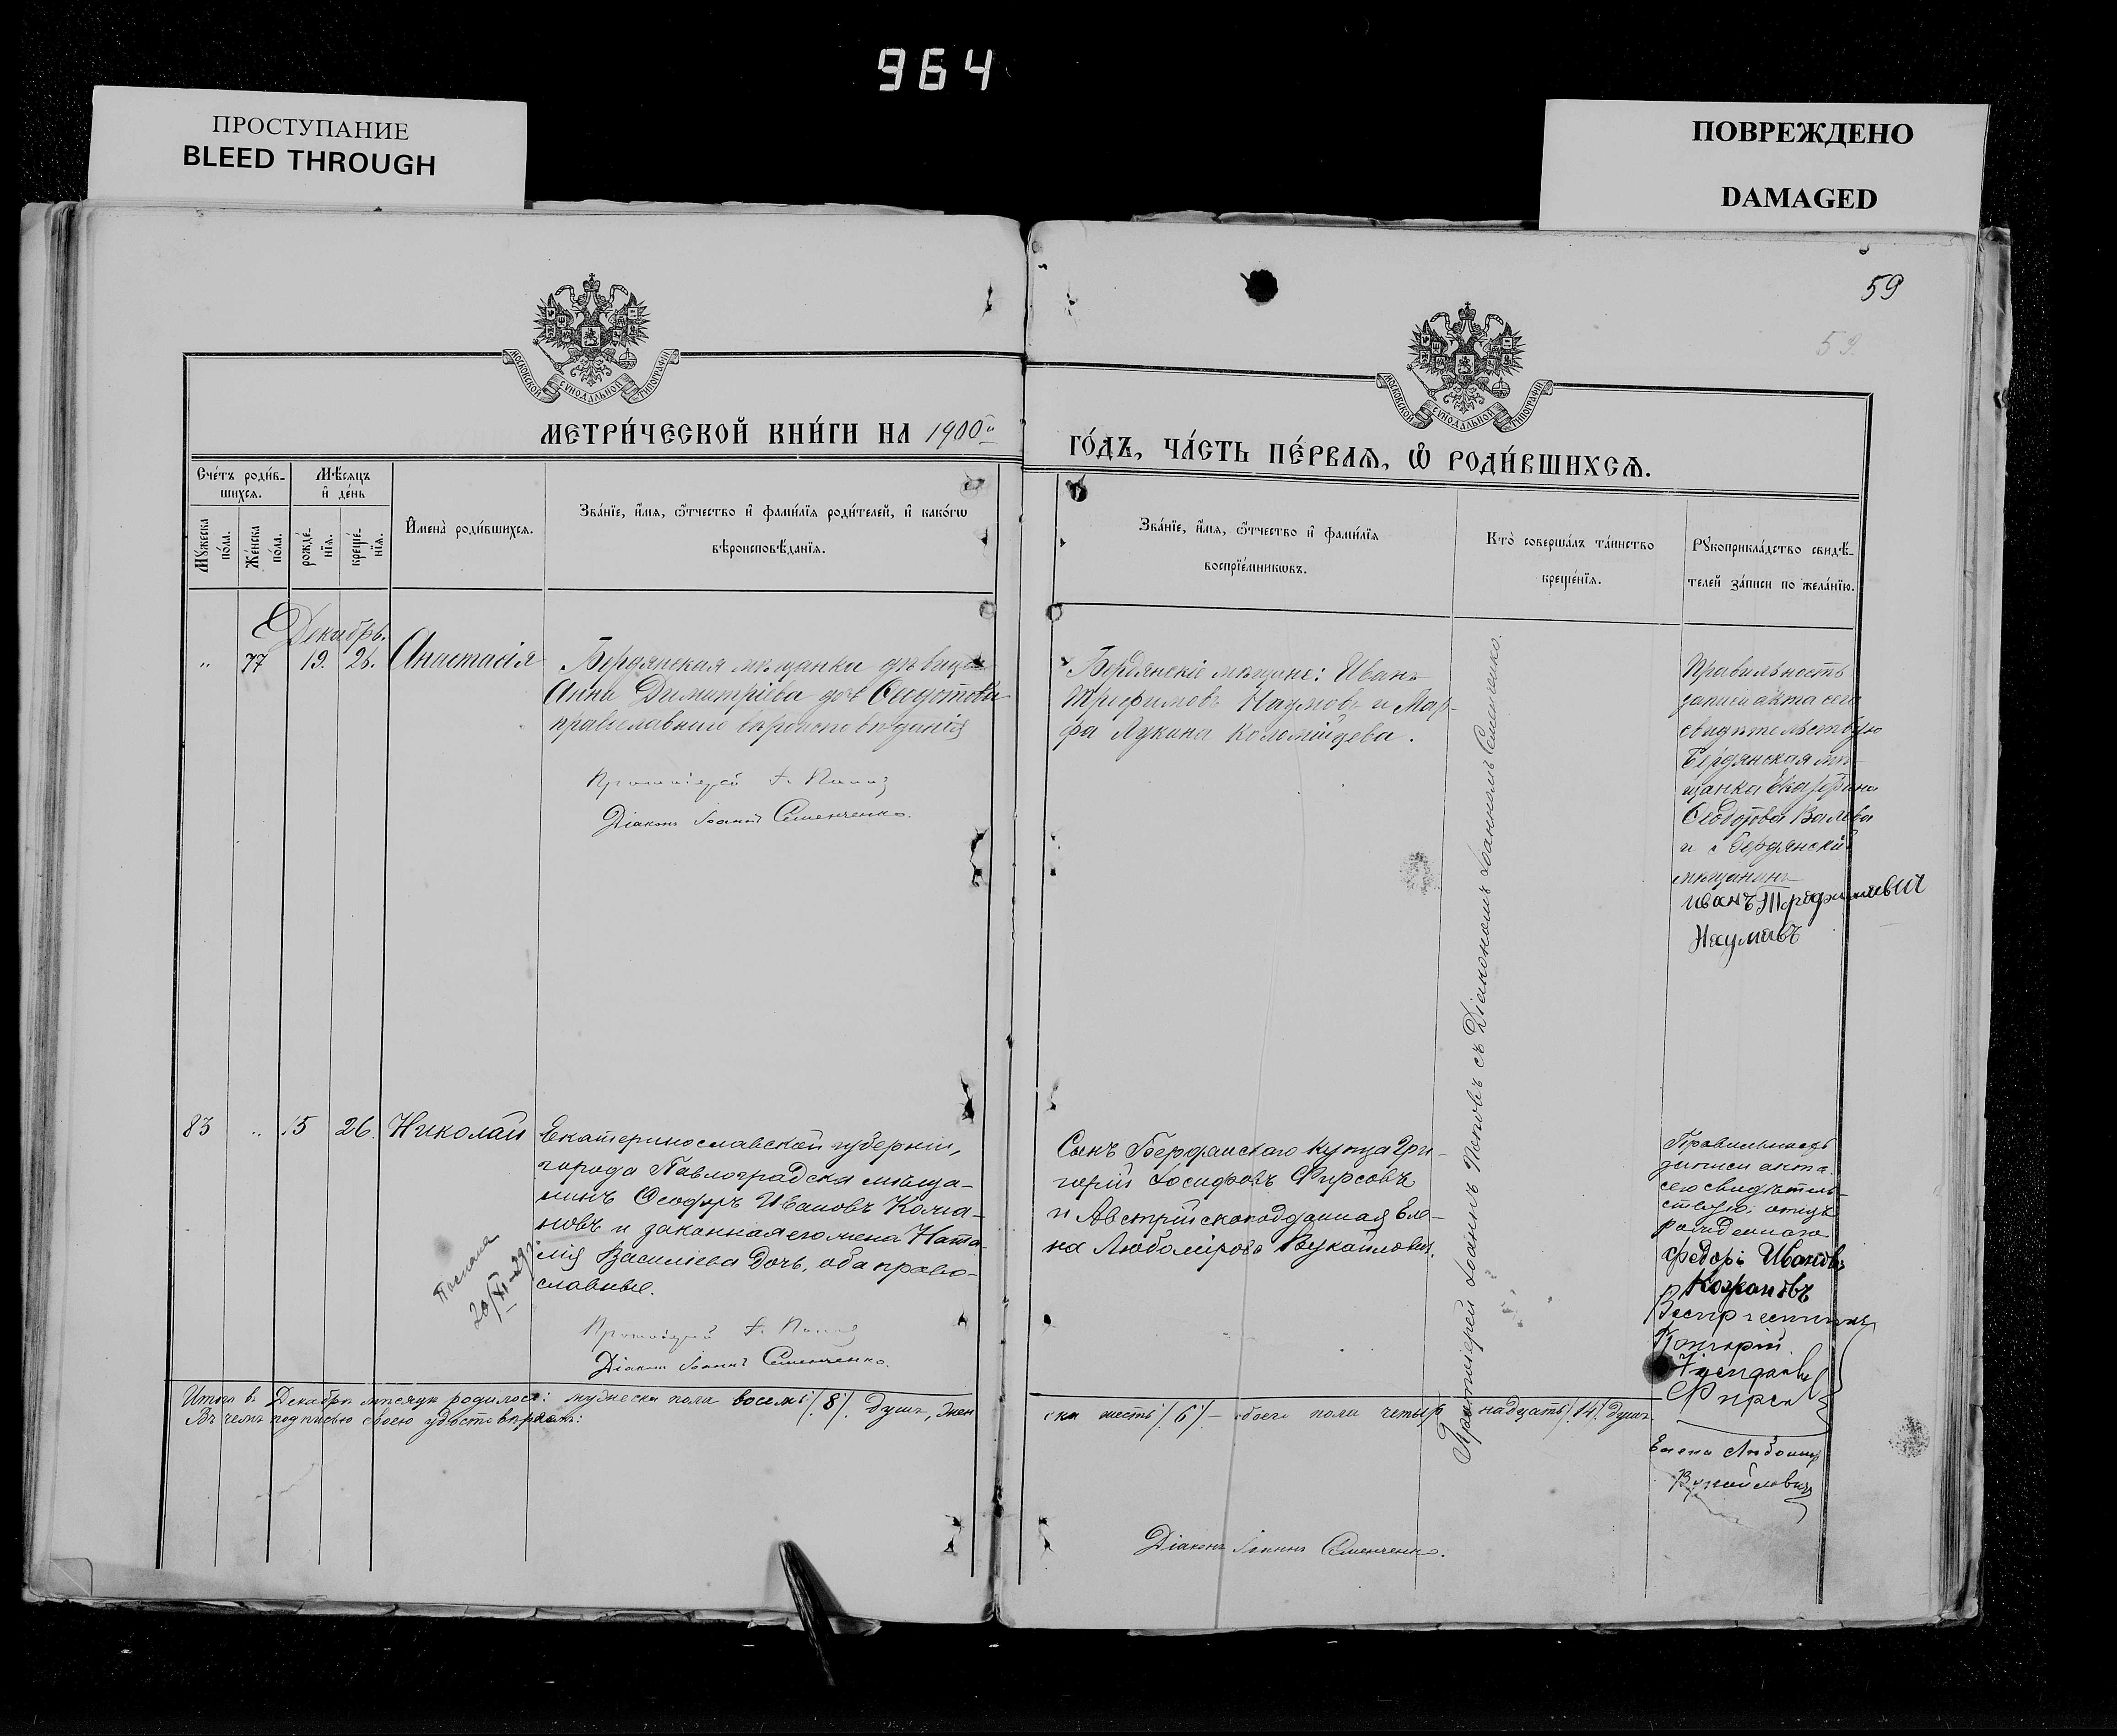 964
ПРОСТУПАНИЕ
BLEED THROUGH
ПОВРЕЖДЕНО
DAMAGED
59
59.
МОСКОВСКОЙ СѴНОДАЛЬНОЙ ТИПОГРАФІИ
МОСКОВСКОЙ СѴНОДАЛЬНОЙ ТИПОГРАФІИ
МЕТРИ́ЧЕСКОЙ КНИ́ГИ НА 1900й
ГО́ДЪ, ЧА́СТЬ ПЕ́РВАЯ, Ѡ҆ РОДИ́ВШИХСЯ.
Сче́тъ роди́в-
шихся.
Мѣ́сяцъ
и҆ де́нь
Мꙋ́жеска
по́ла.
Же́нска
по́ла.
рожде́-
нїя.
креще́-
нїя.
И҆мена̀ роди́вшихся.
Зва́нїе, и҆́мя, ѻ҆́тчество и҆ фами́лїя роди́телей, и҆ како́гѡ
вѣроисповѣ́данїя.
Зва́нїе, и҆́мя, ѻ҆́тчество и҆ фами́лїя
воспрїе́мникѡвъ.
Кто̀ соверша́лъ та́инство
креще́нїя.
Рꙋкоприкла́дство свидѣ́-
телей за́писи по жела́нїю.
Декабрь.
„ 77 19. 26. Анастасія
Бердянская мѣщанка дѣвица
Анна Димитріева
православнаго вѣроисповѣданія
Протоіерей І. Поповъ
Діаконъ Іоаннъ Семенченко.
Бердянскіе мѣщане: Иванъ
Трофимовъ Наумовъ и Мар-
фа Лукина Коломійцева.
Протоіерей Іоаннъ Поповъ съ Діакономъ Іоанномъ Семенченко.
Правильность
записи акта сего
свидѣтельствую
Бердянская мѣ-
щанка Екатерина
Ѳеодорова
и Бердянскій
мѣщанинъ
иванъ Трофимович
Наумовъ
83 „ 15 26. Николай
Екатеринославской губерніи,
города Павлограда мѣща-
нинъ Ѳеодоръ Ивановъ Кожа-
новъ и законная его жена Ната-
лія Василіева дочь, оба право-
славные.
20/XI-29
Протоіерей І. Поповъ
Діаконъ Іоаннъ Семенченко.
Сынъ Бердянскаго купца Гри-
горій Іосифовъ Фирсовъ
и Австрійскоподданная Еле-
на Любомірова Вукайловичъ.
Правильность
записи акта
сего свидѣтель-
ствую: отецъ
рожденнаго
федоръ Ивановъ
Кожановъ
Григорій
Фирсов
Елена Любомир
Вукайловичъ
Итого въ Декабрѣ мѣсяцѣ родилось: мужеска пола восемь /8/ душъ, жен
ска шесть /6/ – обоего пола четыр надцать /14/ душъ.
Въ чемъ подписью своею удостовѣряемъ:
Діаконъ Іоаннъ Семенченко.